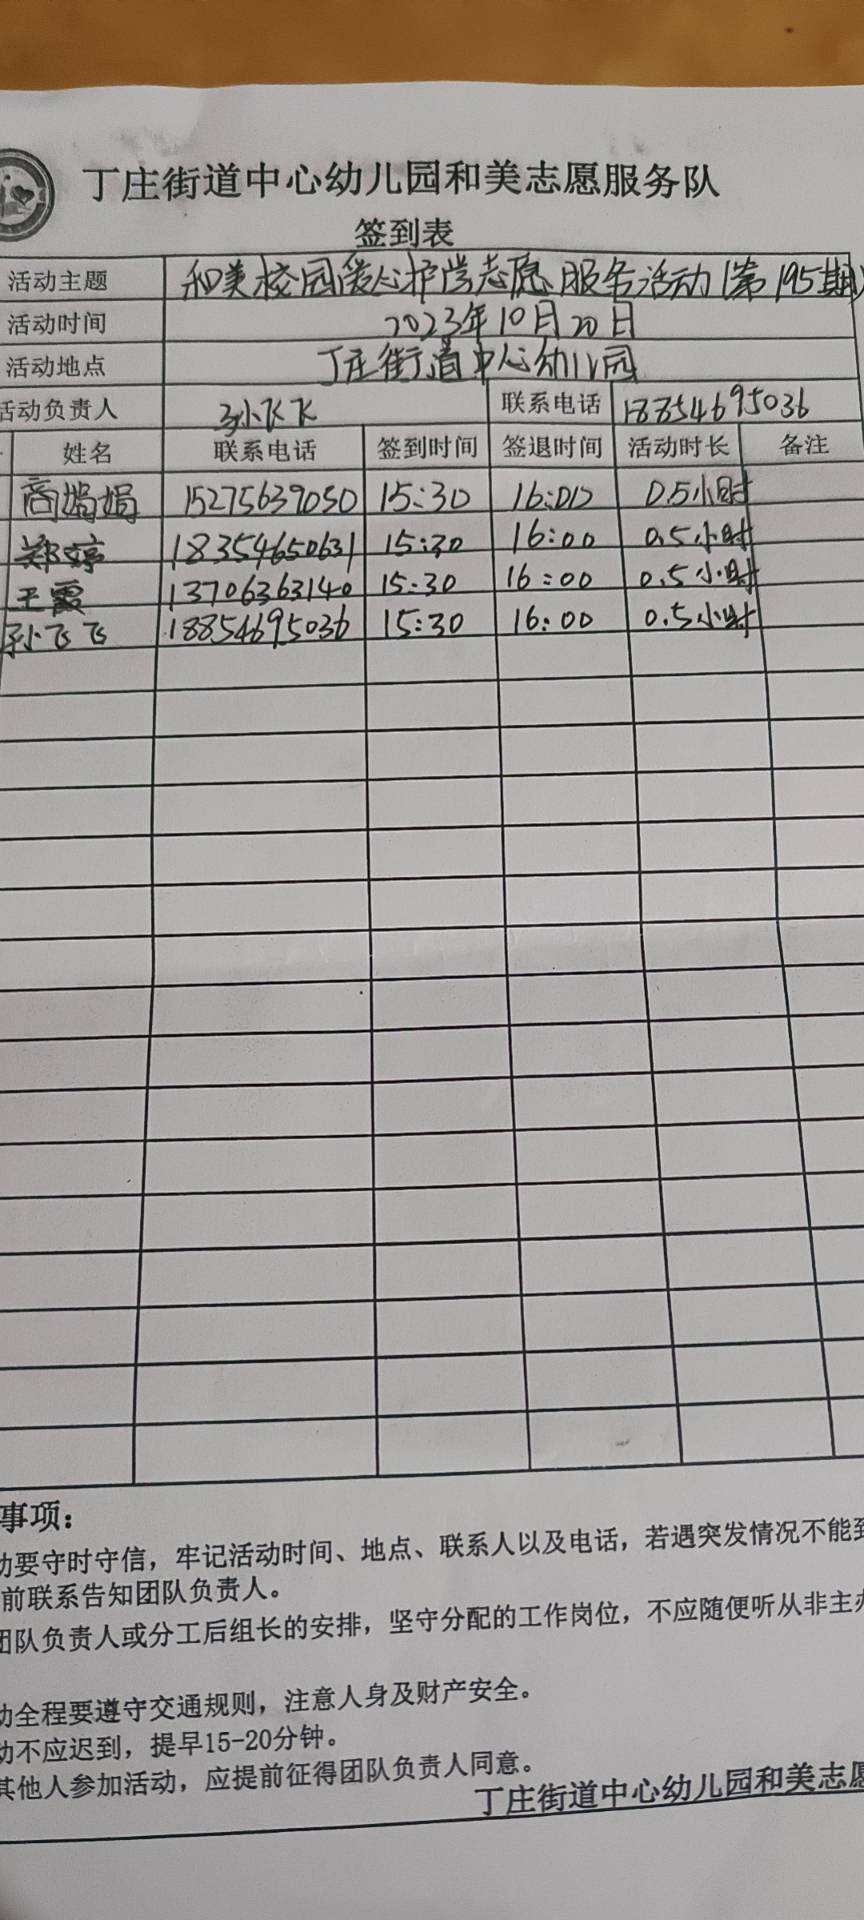 丁庄街道中心幼儿园和美志愿服务队
签到表
活动主题 和美校园爱心护学志愿服务活动(第195期)
活动时间 2023年10月20日
活动地点 丁庄街道中心幼儿园
活动负责人 孙飞飞 联系电话 18854695036
姓名 联系电话 签到时间 签退时间 活动时长 备注
商娟娟 15275639050 15:30 16:00 0.5小时
郑婷 18354650631 15:30 16:00 0.5小时
王霞 13706363140 15:30 16:00 0.5小时
孙飞飞 18854695036 15:30 16:00 0.5小时
事项：
动要守时守信，牢记活动时间、地点、联系人以及电话，若遇突发情况不能到
前联系告知团队负责人。
团队负责人或分工后组长的安排，坚守分配的工作岗位，不应随便听从非主办
动全程要遵守交通规则，注意人身及财产安全。
动不应迟到，提早15-20分钟。
其他人参加活动，应提前征得团队负责人同意。
丁庄街道中心幼儿园和美志愿